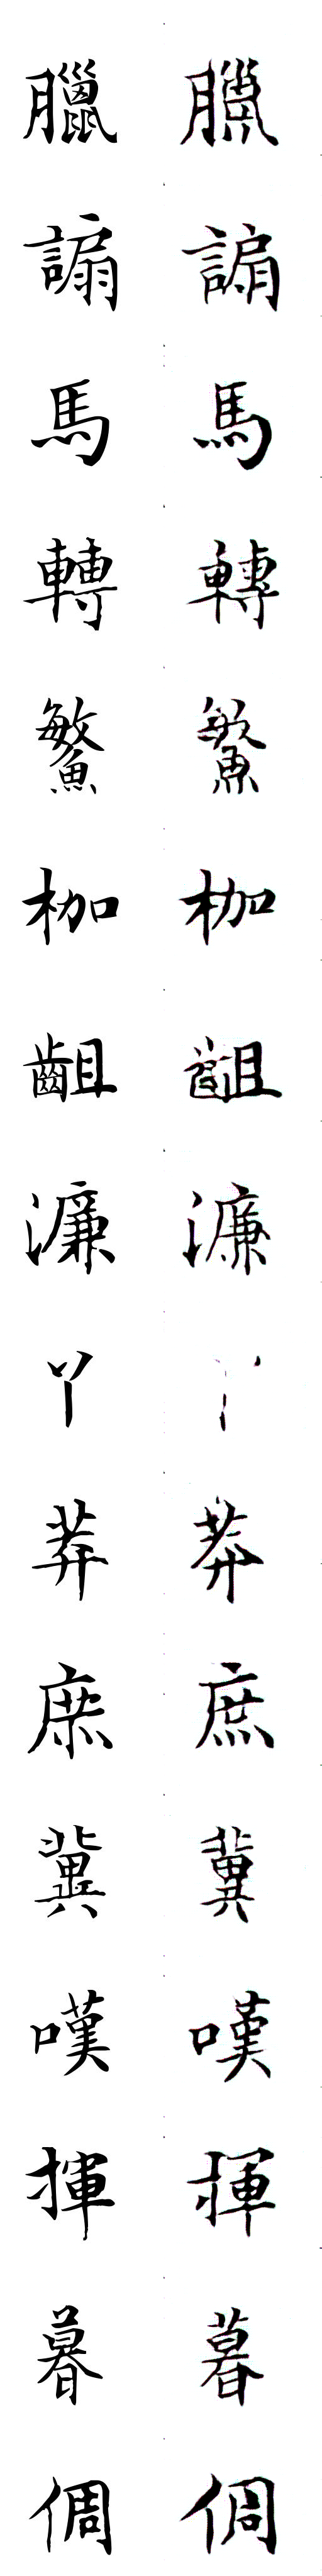 臘 臘
謆 謆
馬 馬
轉 轉
鰵 鰵
枷 枷
齟 齟
濂 濂
丫 丫
莽 莽
庶 庶
冀 冀
嘆 嘆
揮 揮
暮 暮
倜 倜